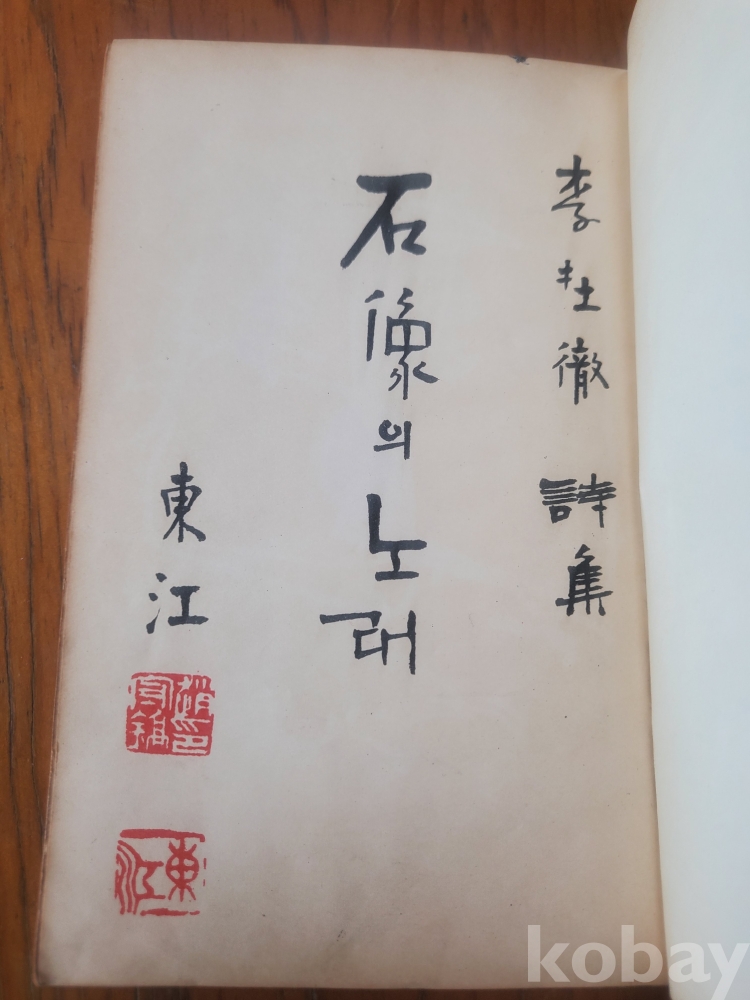 李杜徹 詩集
石像의 노래
東江
趙印守鎬
東江
kobay